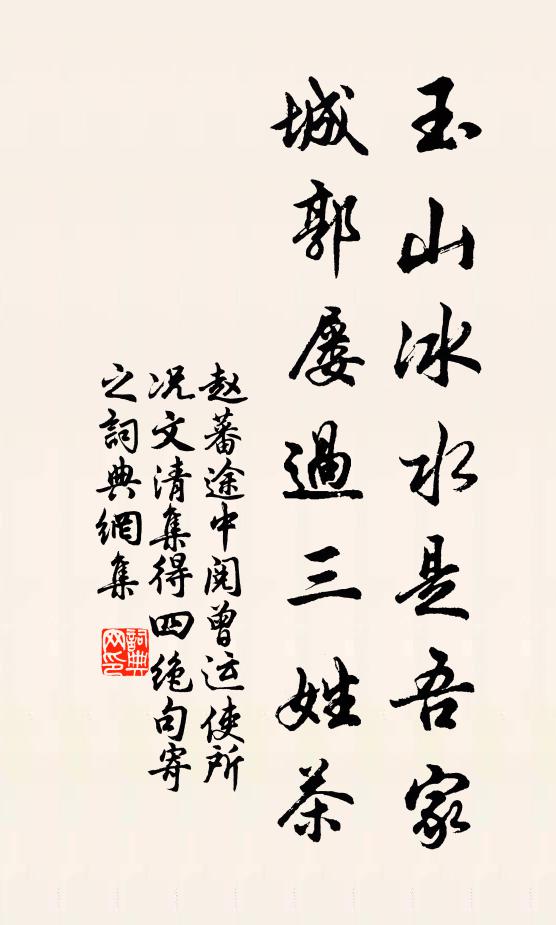 玉山冰水是吾家
城郭屡過三姓茶
赵蕃途中阅曾运使所
况文清集得四绝句寄
之詞典網集
詞典
网印